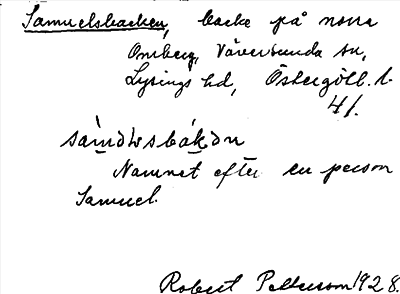 Samuelsbacken, backe på norra
Omberg, Väversunda sn,
Lysings hd, Östergötl. l.
4/.
Namnet efter en person
Samuel.
Robert Pettersson 1928.